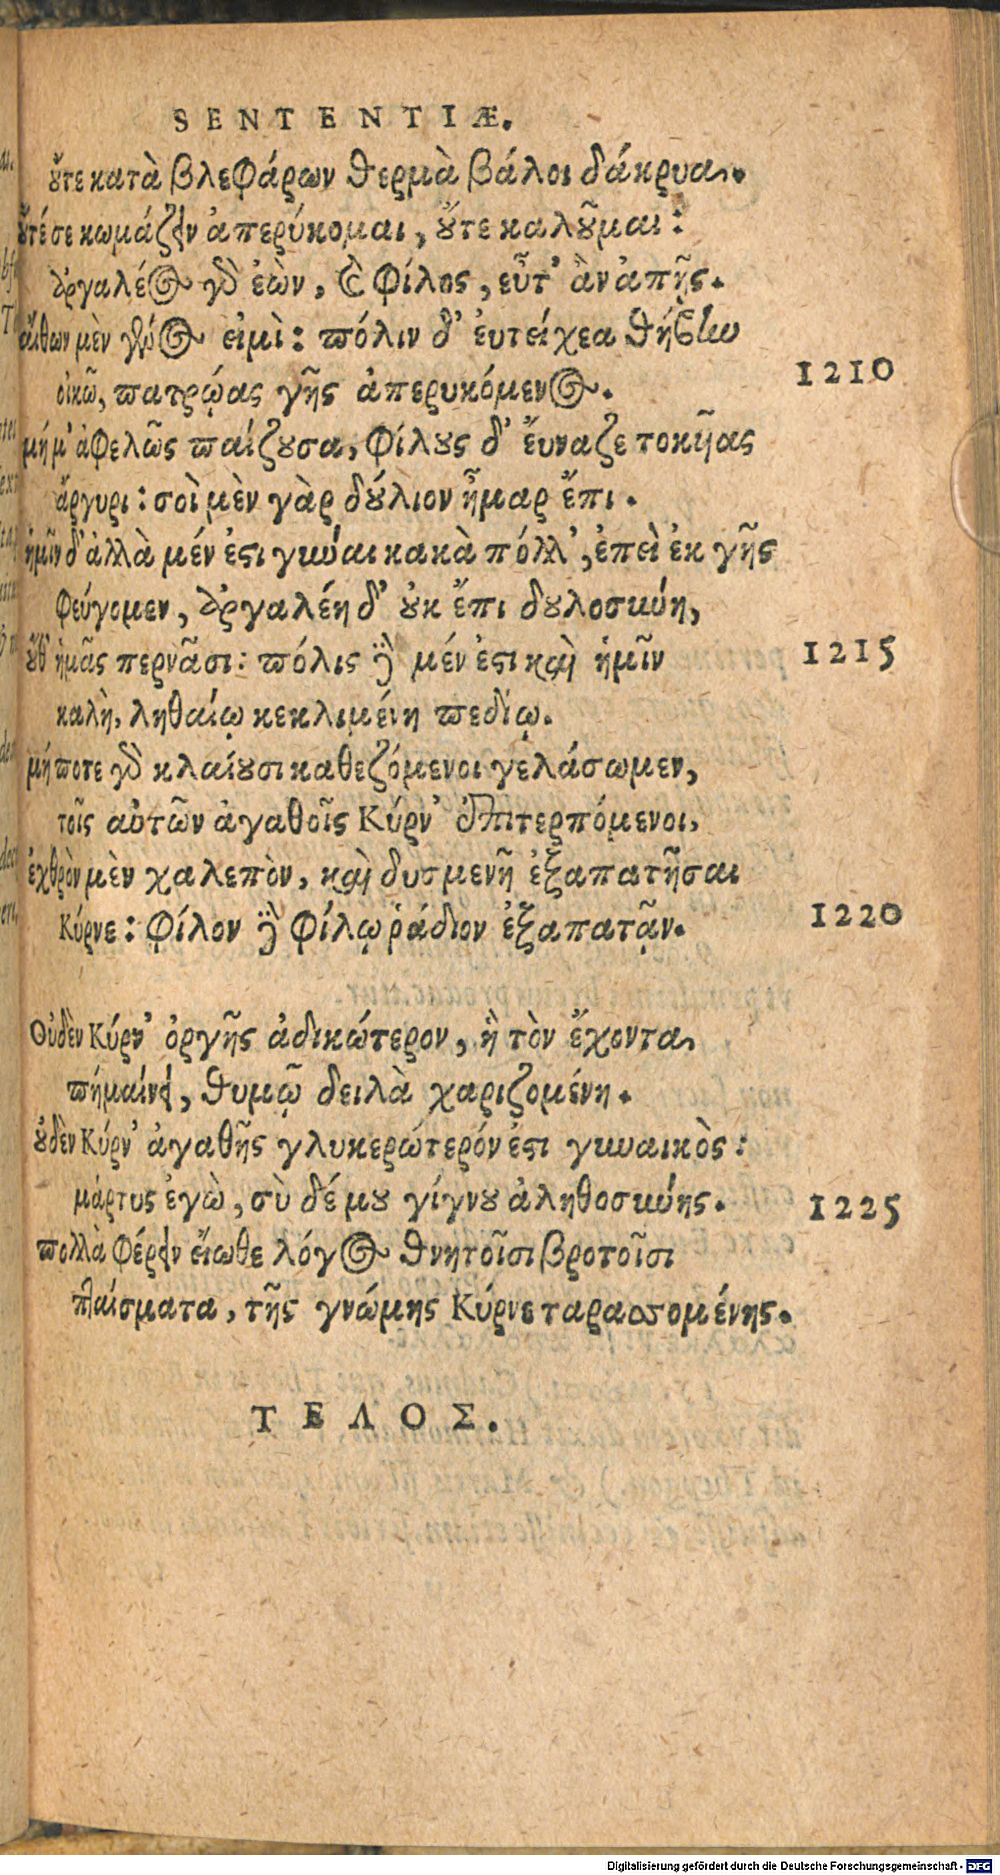 SENTENTIÆ.
οὔτε κατὰ βλεφάρων θερμὰ βάλοι δάκρυα.
οὔτέ σε κωμάζειν ἀπερύκομαι, οὔτε καλοῦμαι:
ἀργαλέος γὸ ἐὼν, καὶ φίλος, εὖτ' ἂν ἀπῇς.
αἴθων μὲν γένος εἰμὶ: πόλιν δ' ἐυτείχεα θήβην
οἰκῶ, πατρῴας γῆς ἀπερυκόμενος.
1210
μή μ' ἀφελῶς παίζουσα, φίλους δ' ἔυναζε τοκῆας
ἄργυρι: σοὶ μὲν γὰρ δούλιον ἦμαρ ἔπι.
ἡμῖν δ' ἀλλὰ μέν ἐστι γύναι κακὰ πόλλ', ἐπεὶ ἐκ γῆς
φεύγομεν, ἀργαλέη δ' οὐκ ἔπι δουλοσύνη,
οὔθ' ἡμᾶς περνᾶσι: πόλις γε μέν ἐστι καὶ ἡμῖν
1215
καλὴ, ληθαίῳ κεκλιμένη πεδίῳ.
μή ποτε γὸ κλαίουσι καθεζόμενοι γελάσωμεν,
τοῖς αὐτῶν ἀγαθοῖς Κύρν' ἐπιτερπόμενοι,
ἐχθρὸν μὲν χαλεπὸν, καὶ δυσμενῆ ἐξαπατῆσαι
Κύρνε: φίλον δὲ φίλῳ ῥάδιον ἐξαπατᾷν.
1220
Οὐδὲν Κύρν' ὀργῆς ἀδικώτερον, ἣ τὸν ἔχοντα
πήμαίνει, θυμῷ δειλὰ χαριζομένη.
οὐδὲν Κύρν' ἀγαθῆς γλυκερώτερόν ἐστι γυναικὸς:
μάρτυς ἐγὼ, σὺ δέ μου γίγνου ἀληθοσύνης.
1225
πολλὰ φέρειν εἴωθε λόγος θνητοῖσι βροτοῖσι
πταίσματα, τῆς γνώμης Κύρνε ταρασσομένης.
ΤΕΛΟΣ.
Digitalisierung gefördert durch die Deutsche Forschungsgemeinschaft - DFG